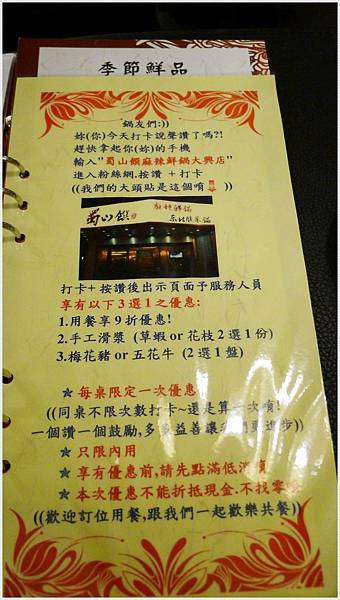 季節鮮品
鍋友們:))
妳(你)今天打卡說聲讚了嗎?!
趕快拿起你(妳)的手機
輸入"蜀山饌麻辣鮮鍋大興店"
進入粉絲網.按讚 +打卡
((我們的大頭貼是這個唷 ))
蜀山饌
麻辣鮮鍋
東北酸菜鍋
打卡+按讚後出示頁面予服務人員
享有以下3選1之優惠:
1.用餐享9折優惠!
2.手工滑漿 (草蝦or花枝2選1份)
3.梅花豬or五花牛 (2選1盤)
★ 每桌限定一次優惠
((同桌不限次數打卡~還是算一次唷!
一個讚一個鼓勵,多多益善讓我們更進步))
★ 只限內用
★ 享有優惠前,請先點滿低消唷
★ 本次優惠不能折抵現金.不找零
((歡迎訂位用餐,跟我們一起歡樂共餐))